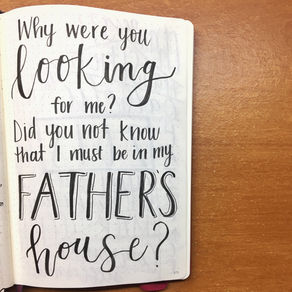 Why were you
looking
for me?
Did you not know
that I must be in my
FATHER'S
house?